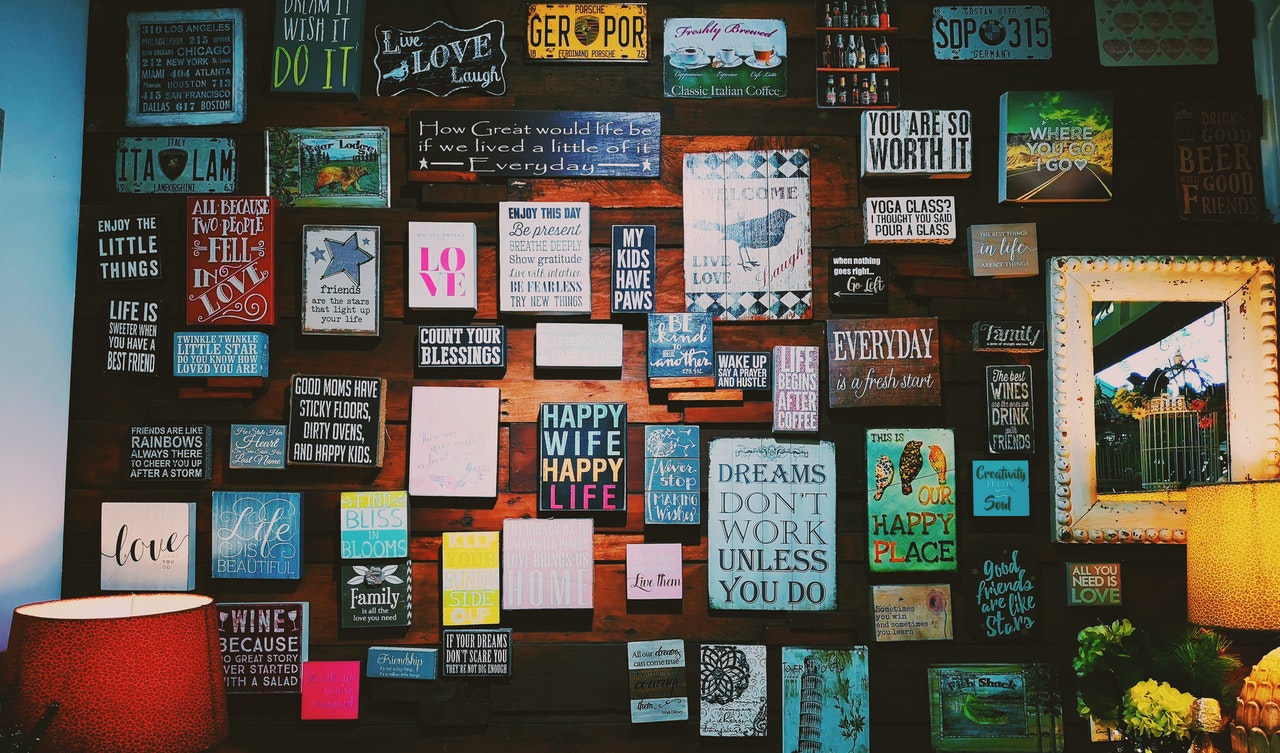 310 LOS ANGELES
PHILADELPHIA 215 DENVER
NEW ORLEANS CHICAGO
212 NEW YORK ST LOUIS
MIAMI 404 ATLANTA
PHOENIX HOUSTON 713
415 SAN FRANCISCO
DALLAS 617 BOSTON
DREAM IT
WISH IT
DO IT
Live
LOVE
Laugh
PORSCHE
GER POR
FERDINAND PORSCHE
Freshly Brewed
Cappuccino Espresso Cafe Latte
Classic Italian Coffee
SDP 315
GERMANY
ITALY
ITA LAM
LAMBORGHINI
How Great would life be
if we lived a little of it
Everyday
YOU ARE SO
WORTH IT
WHERE
YOU GO
I GO
DRINK
GOOD
BEER
WITH
GOOD
FRIENDS
ENJOY THE
LITTLE
THINGS
ALL BECAUSE
TWO PEOPLE
FELL
IN
LOVE
friends
are the stars
that light up
your life
LOVE
ENJOY THIS DAY
Be present
BREATHE DEEPLY
Show gratitude
Live with intention
BE FEARLESS
TRY NEW THINGS
MY
KIDS
HAVE
PAWS
WELCOME
LIVE
LOVE
Laugh
YOGA CLASS?
I THOUGHT YOU SAID
POUR A GLASS
when nothing
goes right..
Go Left
THE BEST THINGS
in life
AREN'T THINGS
LIFE IS
SWEETER WHEN
YOU HAVE A
BEST FRIEND
TWINKLE TWINKLE
LITTLE STAR
DO YOU KNOW HOW
LOVED YOU ARE
COUNT YOUR
BLESSINGS
BE
kind
to one
another
WAKE UP
SAY A PRAYER
AND HUSTLE
LIFE
BEGINS
AFTER
COFFEE
EVERYDAY
is a fresh start
Family
GOOD MOMS HAVE
STICKY FLOORS,
DIRTY OVENS,
AND HAPPY KIDS.
The best
WINES
are the ones we
DRINK
with
FRIENDS
FRIENDS ARE LIKE
RAINBOWS
ALWAYS THERE
TO CHEER YOU UP
AFTER A STORM
He Stole Her
Heart
She Stole His
Last Name
HAPPY
WIFE
HAPPY
LIFE
Never
STOP
MAKING
Wishes
DREAMS
DON'T
WORK
UNLESS
YOU DO
THIS IS
OUR
HAPPY
PLACE
Creativity
FEEDS THE
Soul
love
YOU DO
Life
IS
BEAUTIFUL
FIND
BLISS
IN
BLOOMS
Family
is all the
love you need
KEEP
YOUR
SUNNY
SIDE
UP
LOVE
BRINGS US
HOME
Live them
Sometimes
you win
and sometimes
you learn
Good
friends
are like
STARS
ALL YOU
NEED IS
LOVE
WINE
BECAUSE
NO GREAT STORY
EVER STARTED
WITH A SALAD
Friendship
IF YOUR DREAMS
DON'T SCARE YOU
THEY'RE NOT BIG ENOUGH
All our dreams
can come true
courage
them
Fish Shack